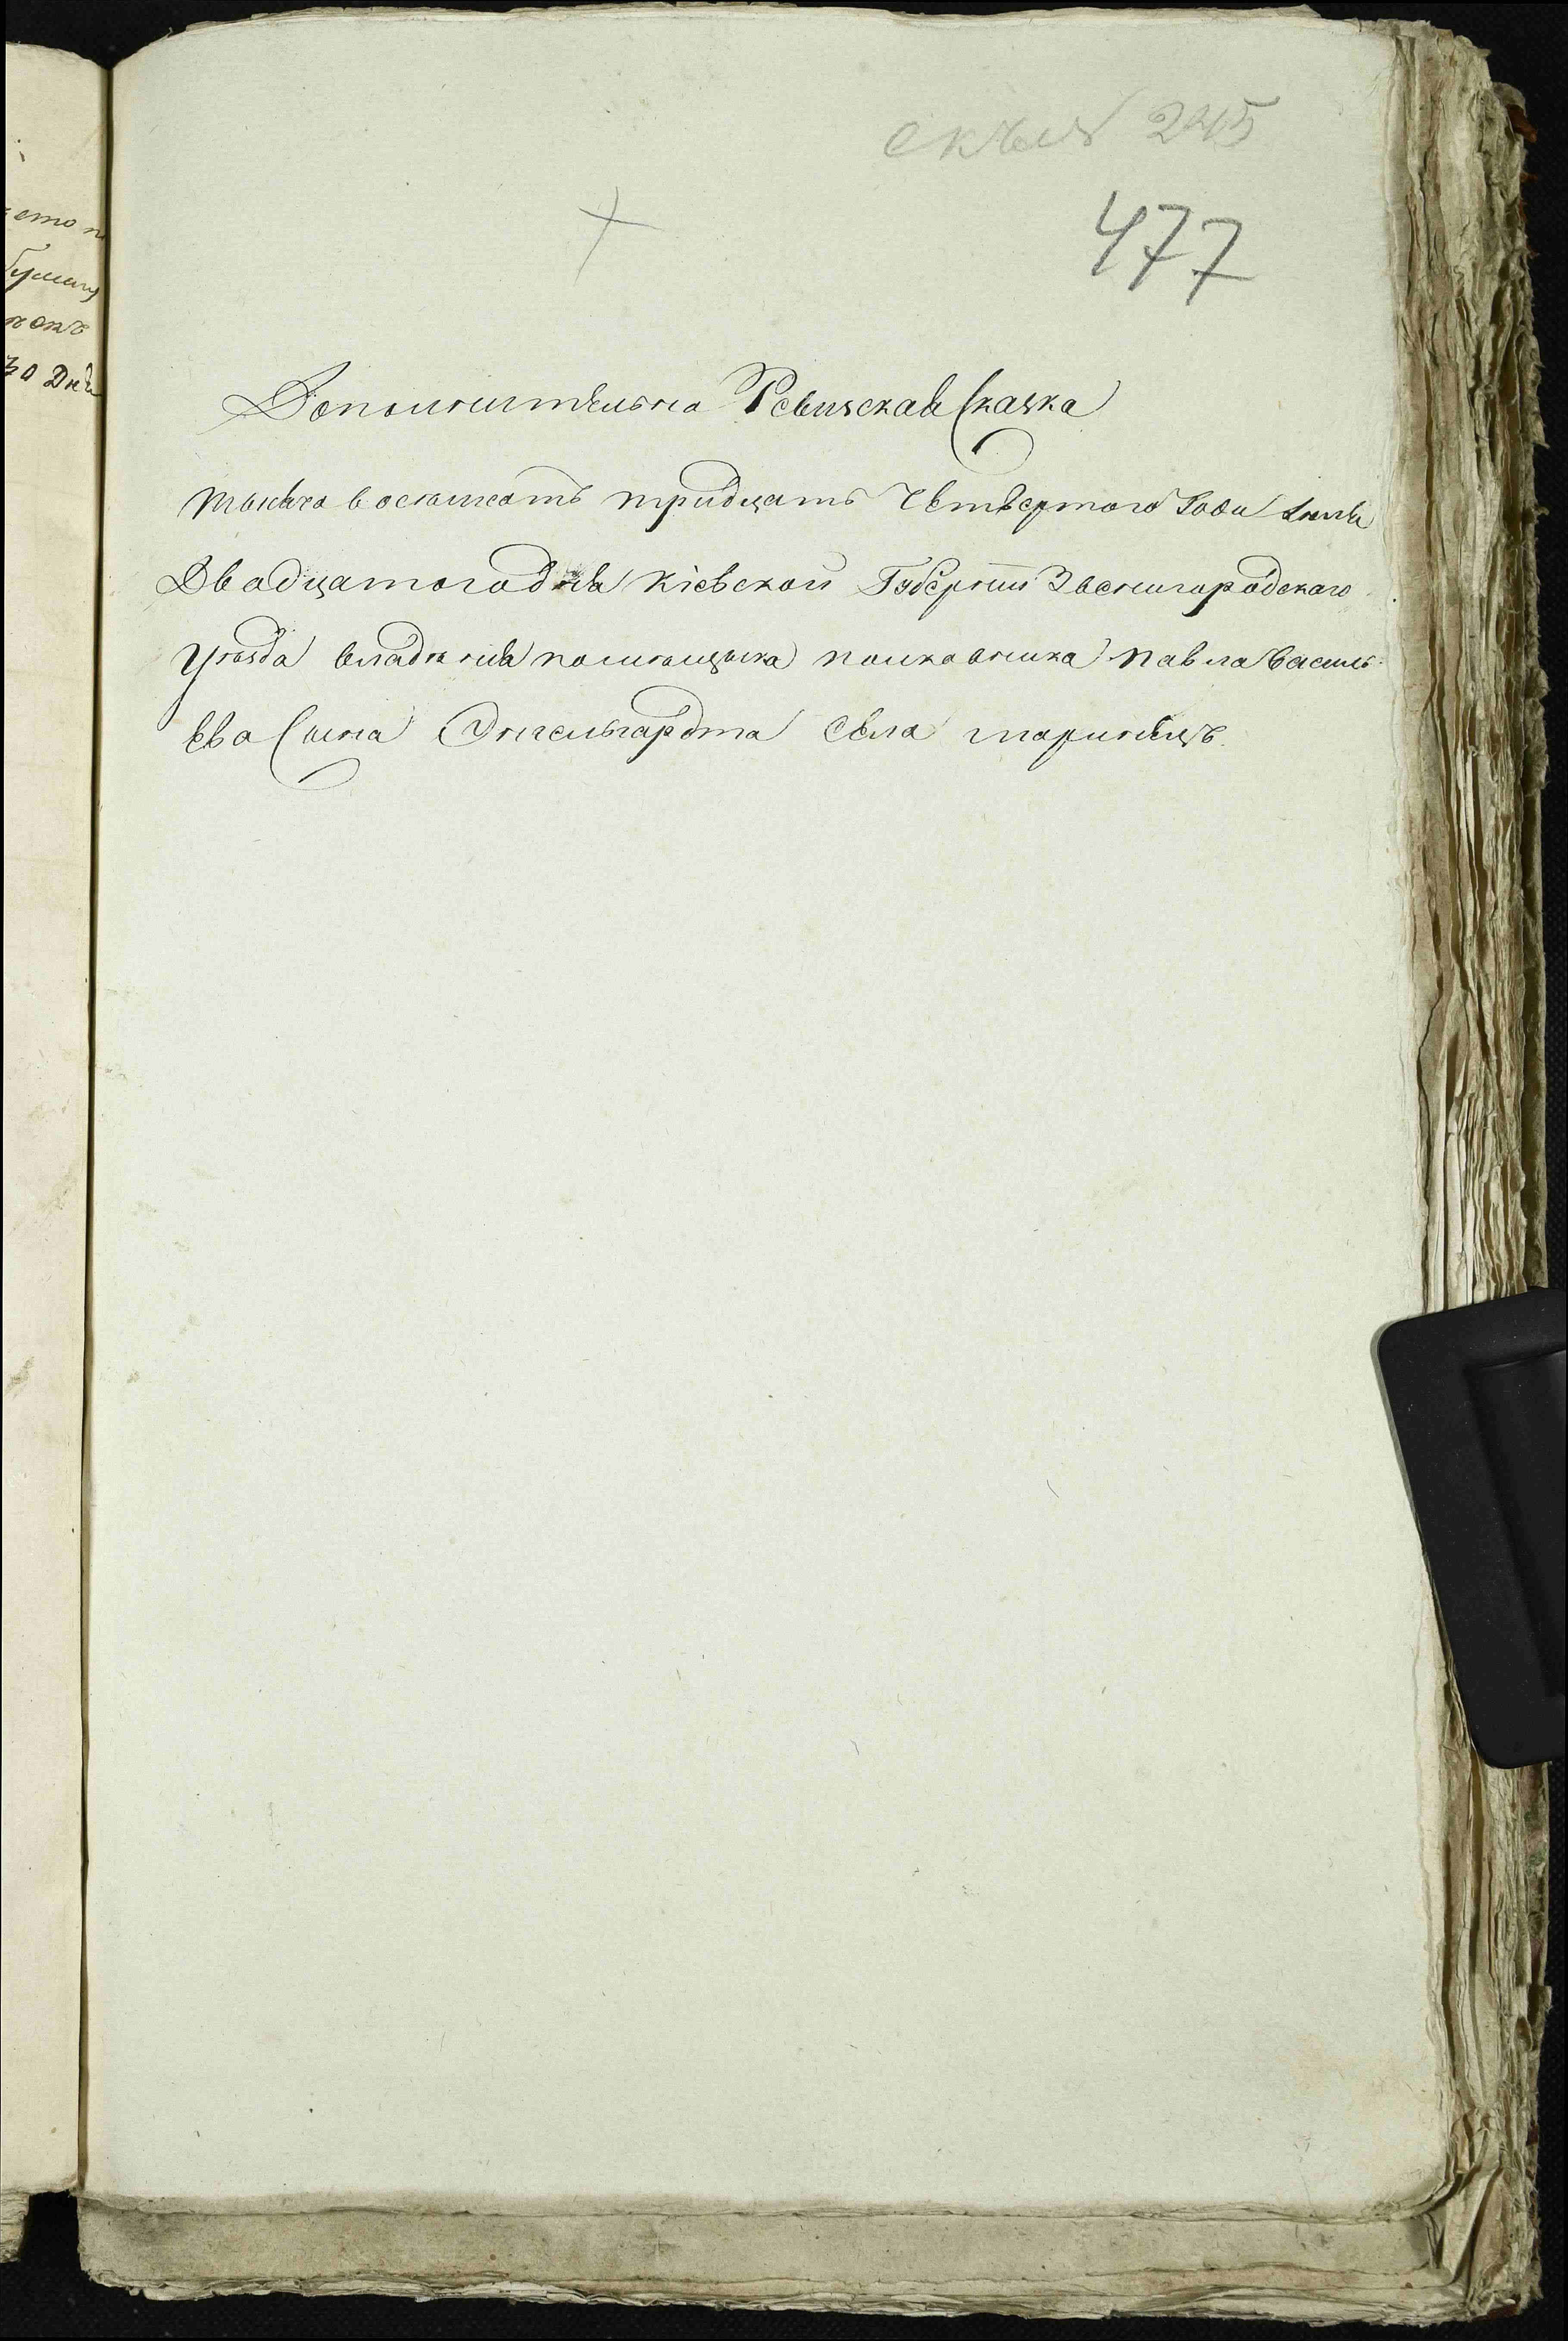 245
477
Дополнительна Ревизская Сказка
тысяча восемьсотъ тридцать Четвертого Года Iюля
Двадцатого дня Кіевской Губерніи Звенигородскаго
Уѣзда владѣнія помѣщыка полковника Павла Василь
Ева Сына Энгельгардта Села Маринецъ.
сто
бумагу
30 Дня